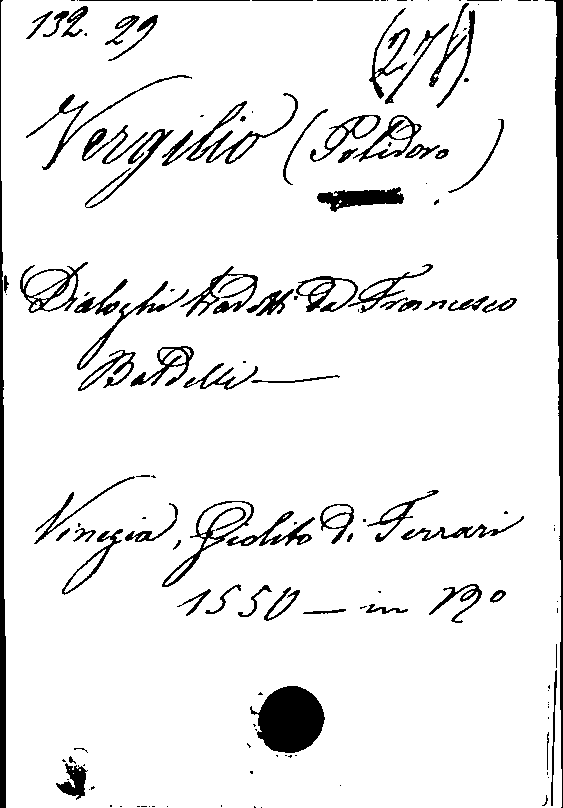 132. 29
(278).
Vergilio (Polidoro).
Dialoghi tradotti da Francesco
Baldelli —
Vinegia, Giolito di Ferrari
1550 — in 12º